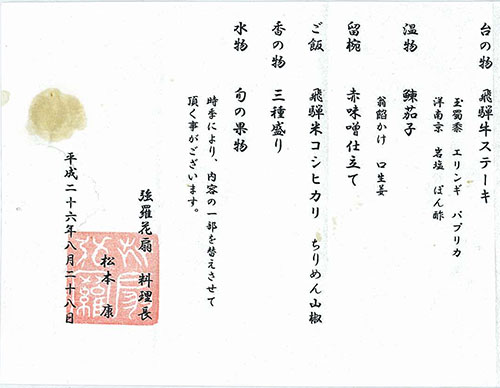 台の物 飛騨牛ステーキ
玉蜀黍 エリンギ パプリカ
洋南京 岩塩 ぽん酢
温物 鰊茄子
翁餡かけ 口生姜
留椀 赤味噌仕立て
ご飯 飛騨米コシヒカリ ちりめん山椒
香の物 三種盛り
水物 旬の果物
時季により、内容の一部を替えさせて
頂く事がございます。
強羅花扇 料理長
松本 康
平成二十六年八月二十八日